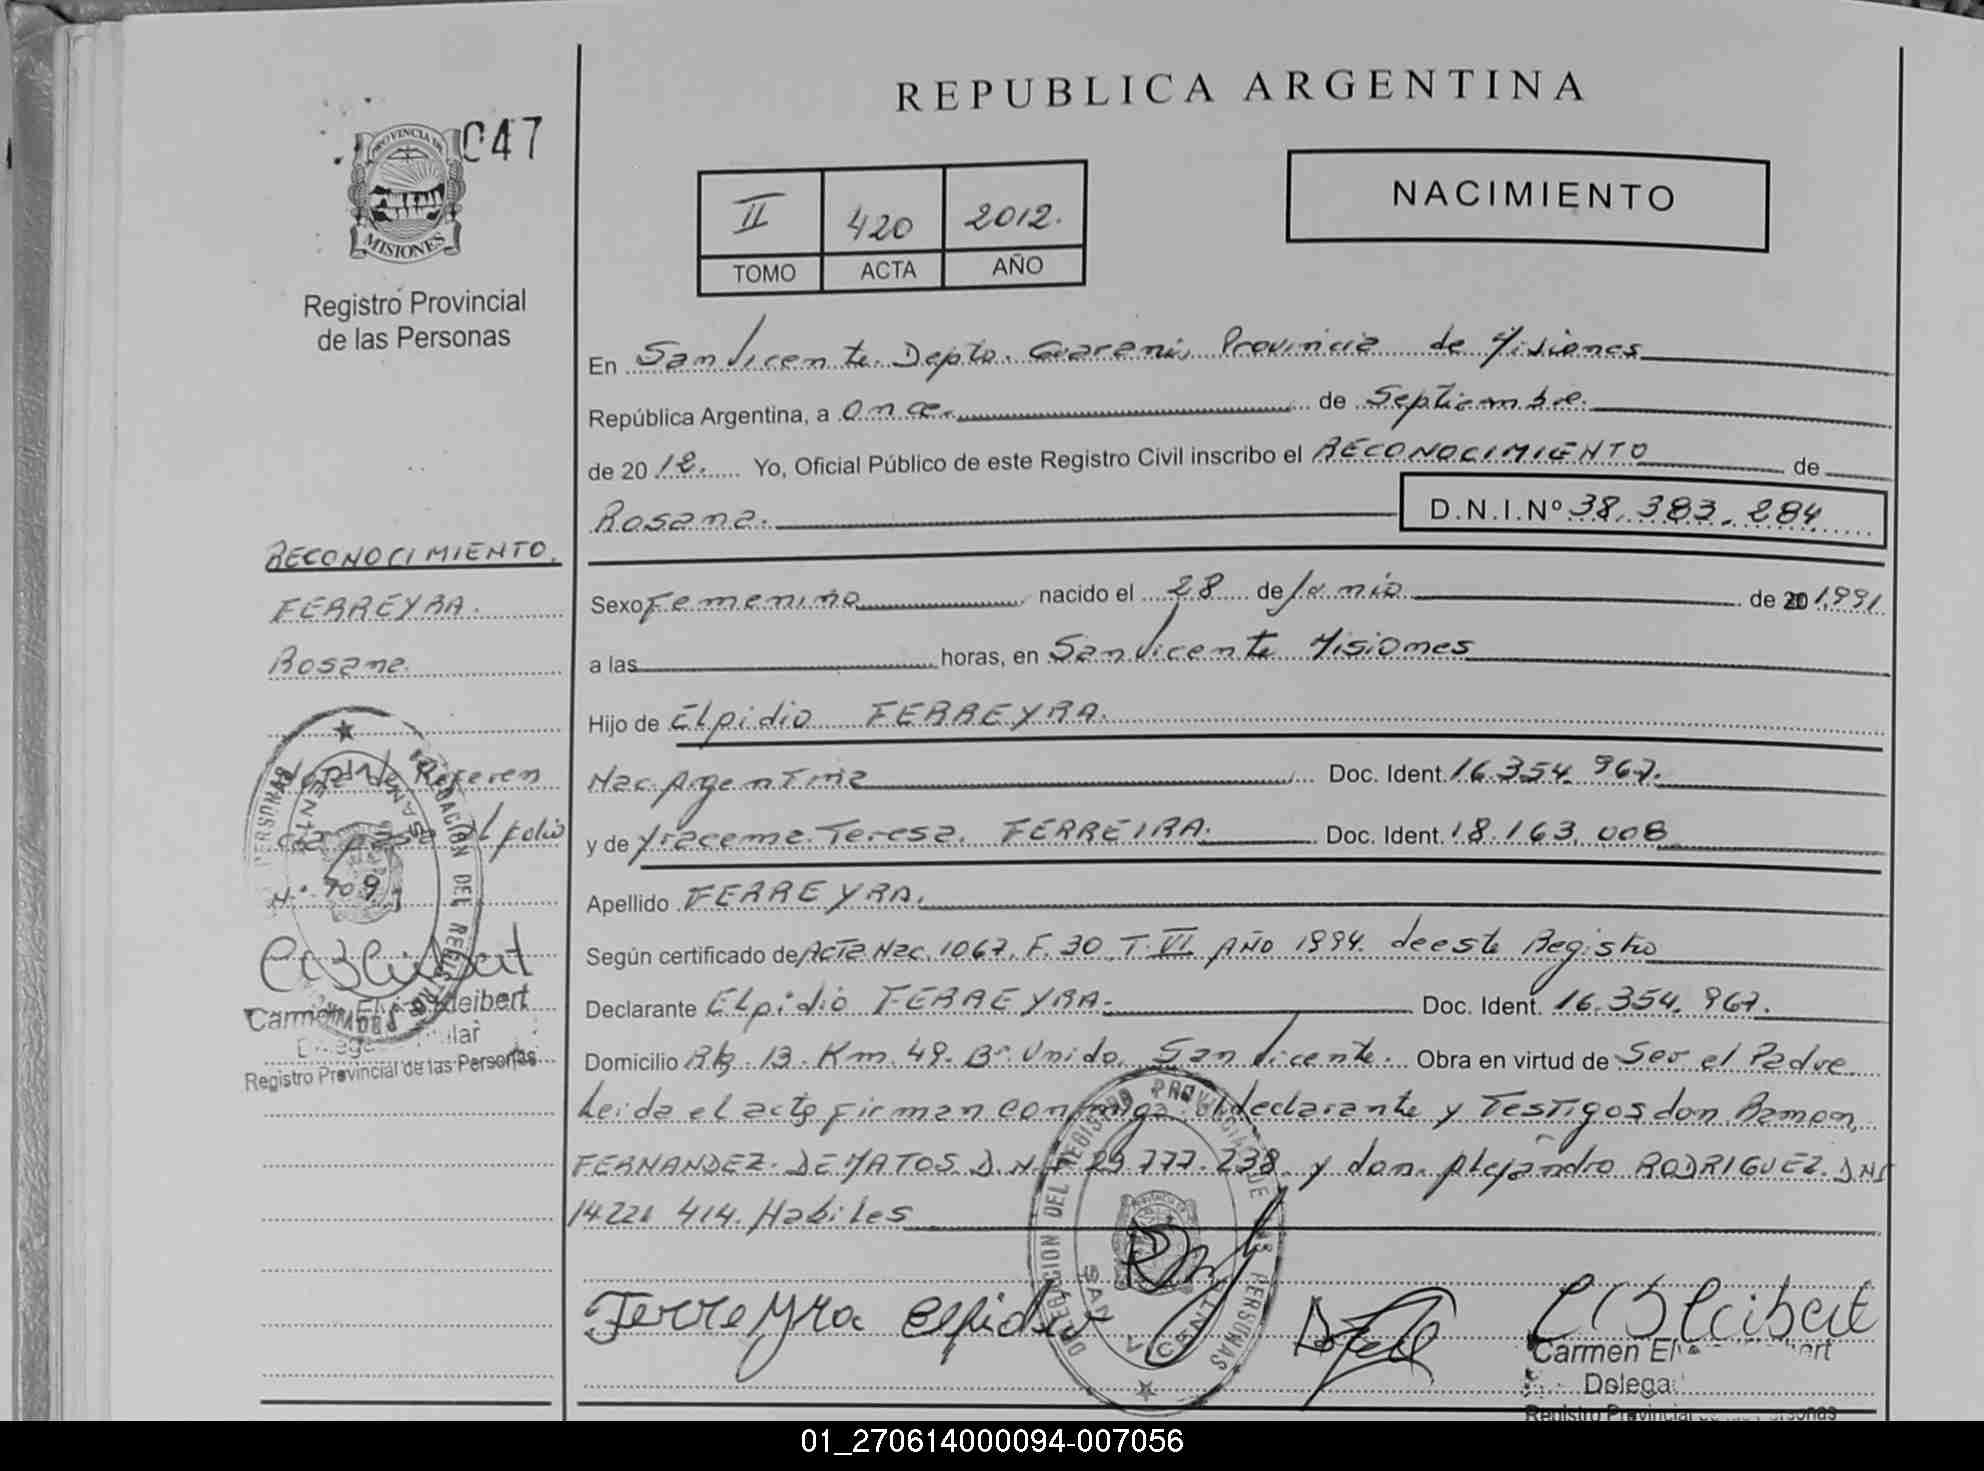 REPUBLICA ARGENTINA
047
PROVINCIA DE
MISIONES
Registro Provincial
de las Personas
II 420 2012.
TOMO ACTA AÑO
NACIMIENTO
En San Vicente. Depto. Guarani, Provincia de Misiones
República Argentina, a once. de Septiembre.
de 2012. Yo, Oficial Público de este Registro Civil inscribo el RECONOCIMIENTO de
Rosana. D.N.I.Nº 38.383.284
RECONOCIMIENTO.
FERREYRA.
Rosana.
Sexo Femenino nacido el 28 de Junio de 20 1991
a las horas, en San Vicente Misiones
Hijo de Elpidio FERREYRA.
Nac. Argentina Doc. Ident. 16.354.967.
y de Yracema Teresa. FERREIRA. Doc. Ident. 18.163.008
Apellido FERREYRA.
Según certificado de Acta Nac. 1067. F. 30. T. VI AÑO 1994. de este Registro
Declarante Elpidio FERREYRA. Doc. Ident. 16.354.967.
Domicilio Km. 49. Bº Unido. San Vicente. Obra en virtud de Ser el Padre.
Leida el acta firman conmigo el declarante y Testigos don Ramon,
FERNANDEZ. DE MATOS. D.N.I 29.777.238. y don. Alejandro RODRIGUEZ. DNI
14.221 414. Habiles
Referen
cia pase al folio
Nº 709
DELEGACION DEL REGISTRO
SAN VICENTE
Registro Provincial de las Personas
DELEGACION DEL REGISTRO PROVINCIAL DE LAS PERSONAS
SAN VICENTE
Ferreyra Elpidio
Carmen
Delega
Registro Provincial
01_270614000094-007056